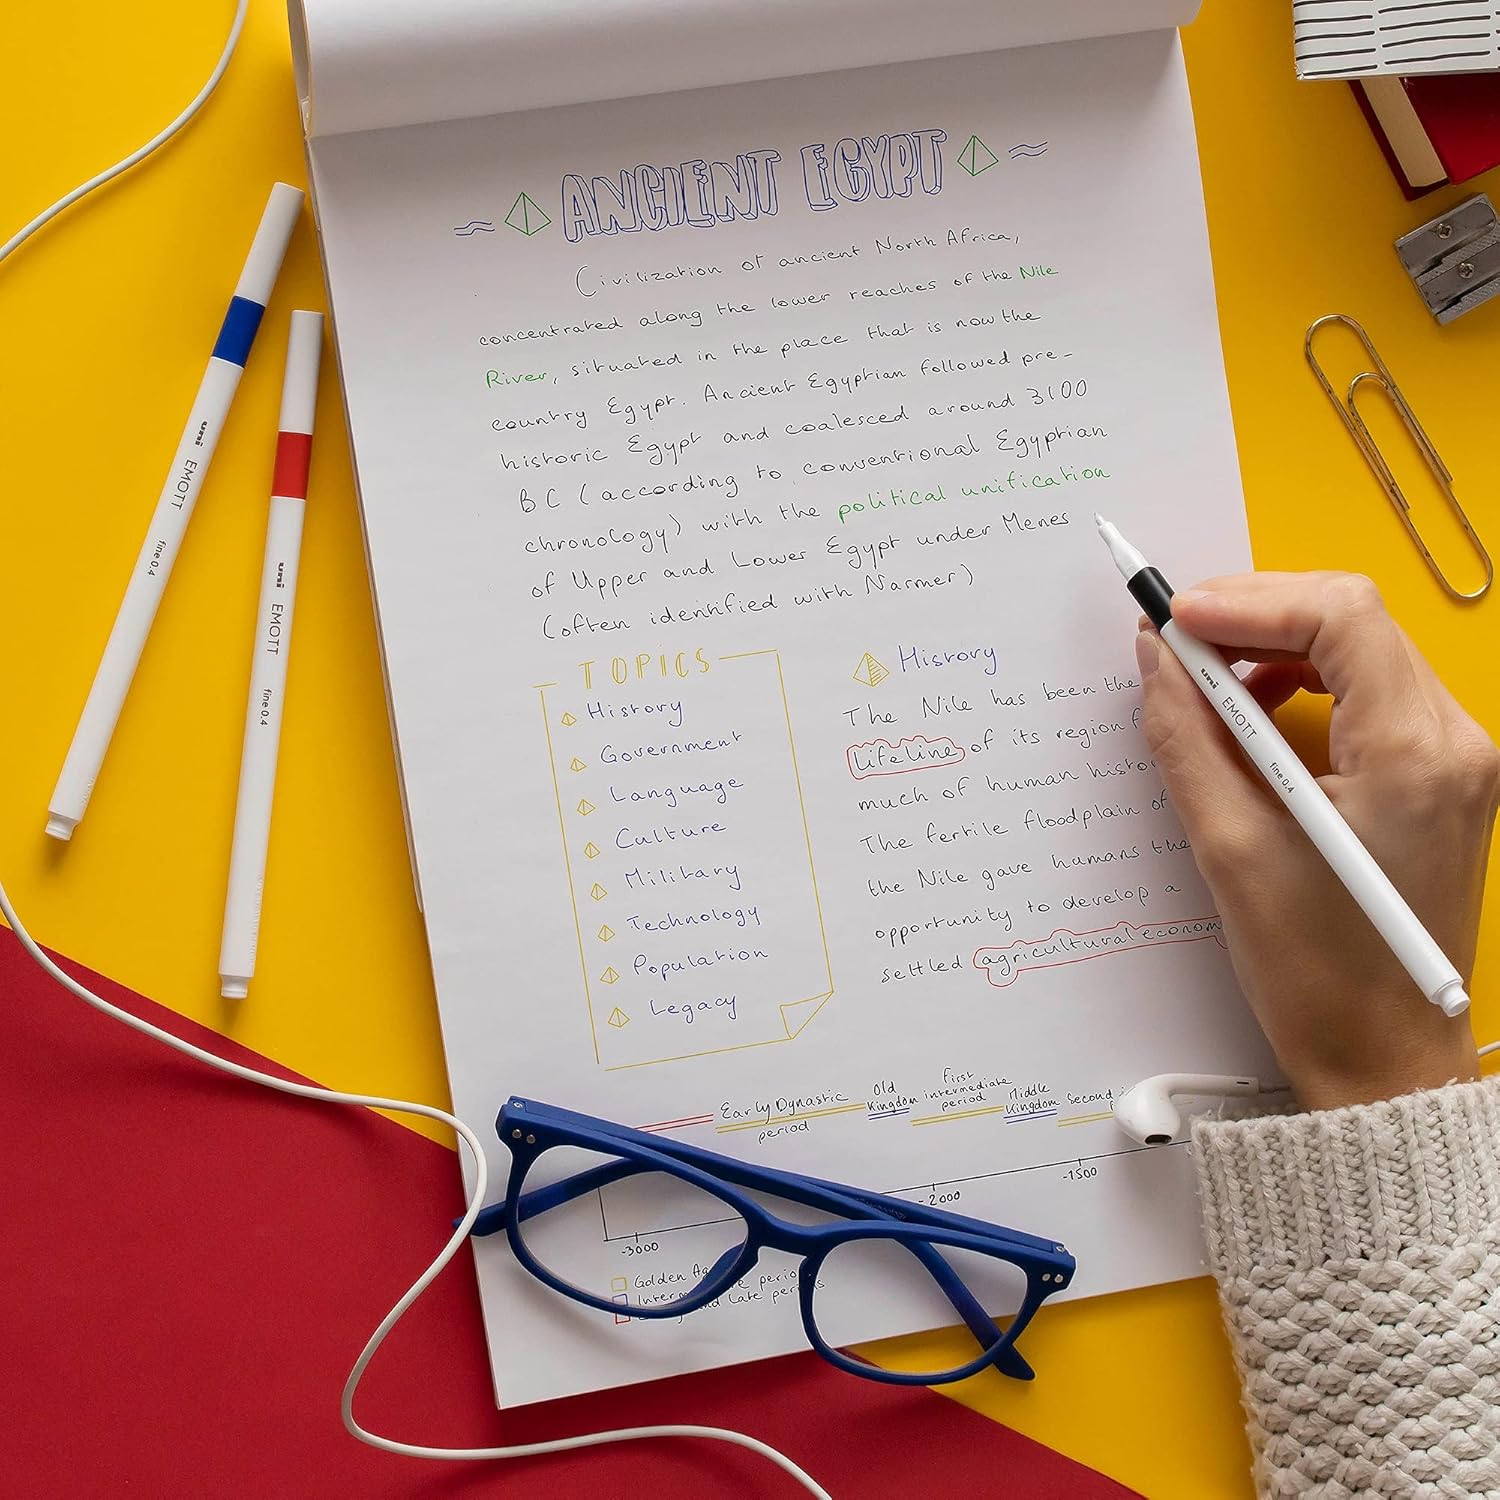 ANCIENT EGYPT
Civilization of ancient North Africa,
concentrated along the lower reaches of the Nile
River, situated in the place that is now the
country Egypt. Ancient Egyptian followed pre-
historic Egypt and coalesced around 3100
BC (according to conventional Egyptian
chronology) with the political unification
of Upper and Lower Egypt under Menes
(often identified with Narmer)
TOPICS
History
Government
Language
Culture
Military
Technology
Population
Legacy
History
The Nile has been the
lifeline of its region f
much of human histo
The fertile floodplain of
the Nile gave humans the
opportunity to develop a
settled agricultural econom
Early Dynastic period
Old Kingdom
First intermediate period
Middle Kingdom
Second i
-3000
-2000
-1500
Golden Ag
perio
Inter
and Late periods
uni EMOTT fine 0.4
uni EMOTT fine 0.4
uni EMOTT fine 0.4